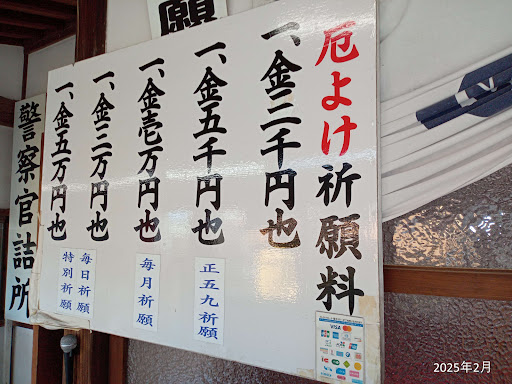 願
厄よけ祈願料
一、金三千円也
一、金五千円也
正五九祈願
一、金壱万円也
毎月祈願
一、金三万円也
毎日祈願
一、金五万円也
特別祈願
警察官詰所
VISA
2025年2月